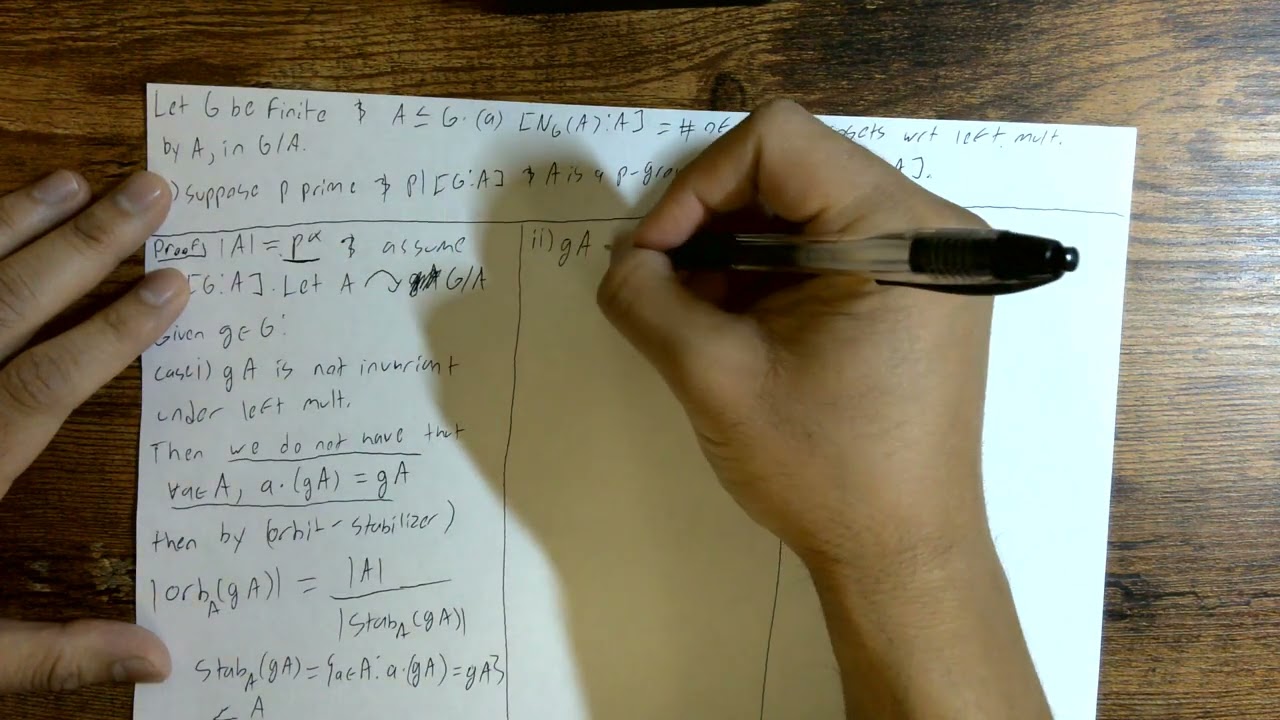 Let G be finite & A ≤ G. (a) [N_G(A):A] = # of cosets wrt left mult.
by A, in G/A.
) suppose p prime & p | [G:A] & A is a p-grou A].
Proof |A| = p^α & assume
[G:A]. Let A ↷ G/A
Given g∈G:
case i) gA is not invariant
under left mult.
Then we do not have that
∀a∈A, a·(gA) = gA
then by (orbit-stabilizer)
|orb_A(gA)| = |A| / |Stab_A(gA)|
Stab_A(gA) = {a∈A: a·(gA) = gA}
≤ A
ii) gA